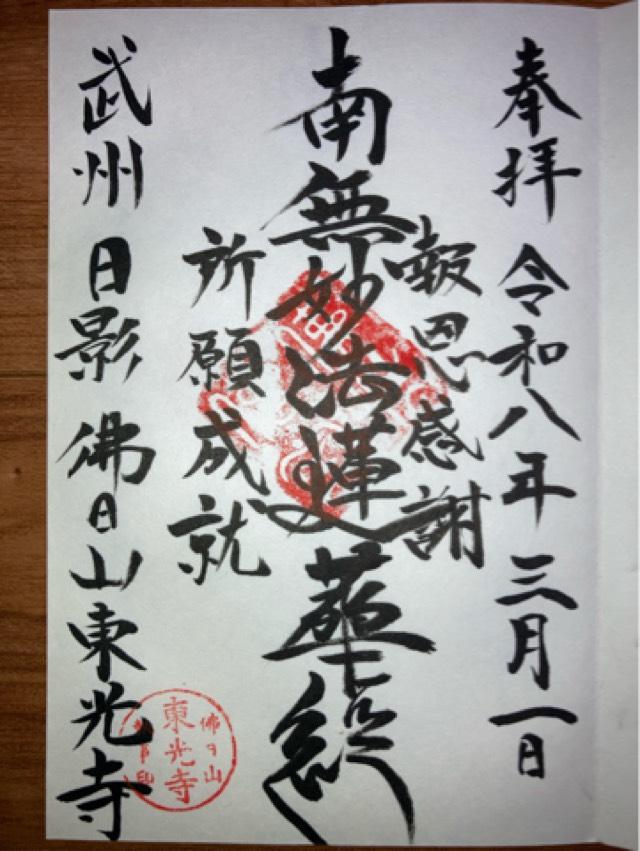 奉拝 令和八年 三月一日
報恩感謝
南無妙法蓮華経
所願成就
武州 日影 佛日山東光寺
佛日山
東光寺